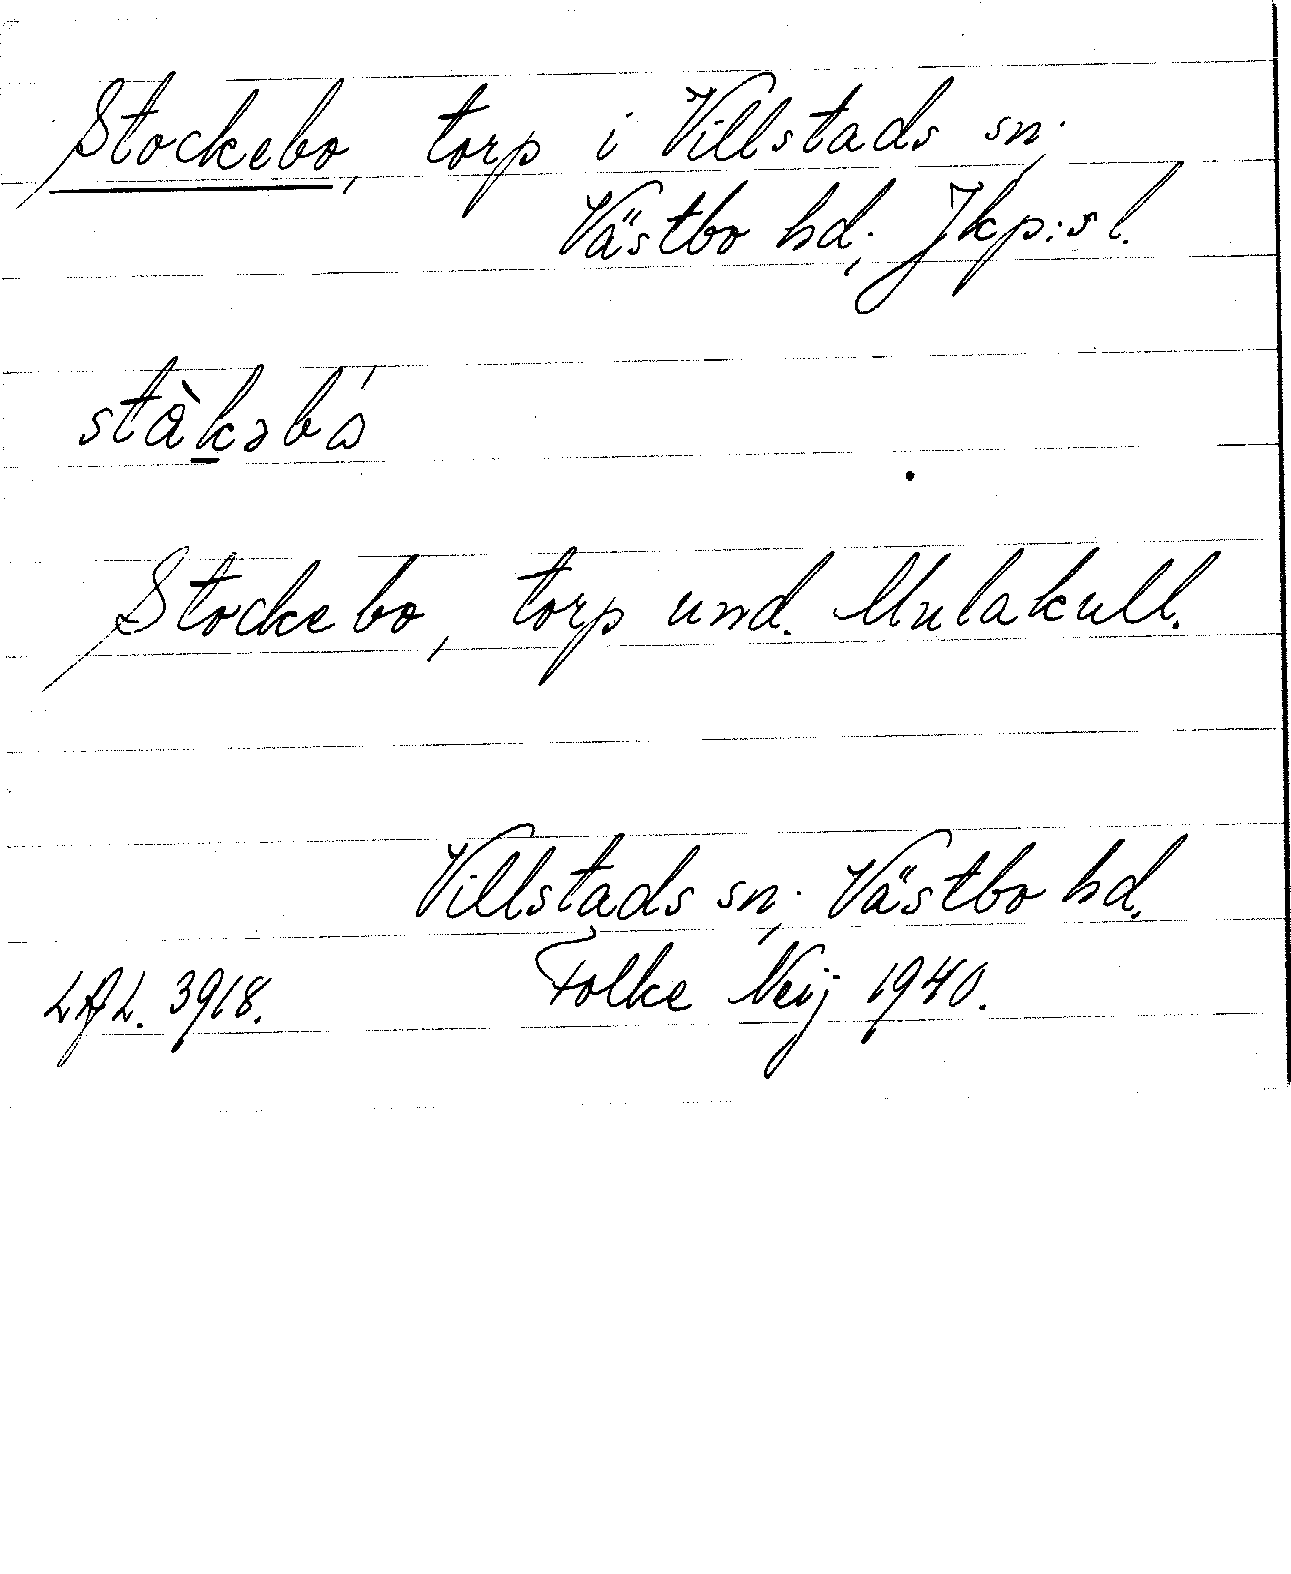 Stockebo, torp i Villstads sn.,
Västbo hd., Jkp:s l.
stàkəbó
Stockebo, torp und. Mulakull.
Villstads sn., Västbo hd.
LAL. 3918. Folke Neij 1940.